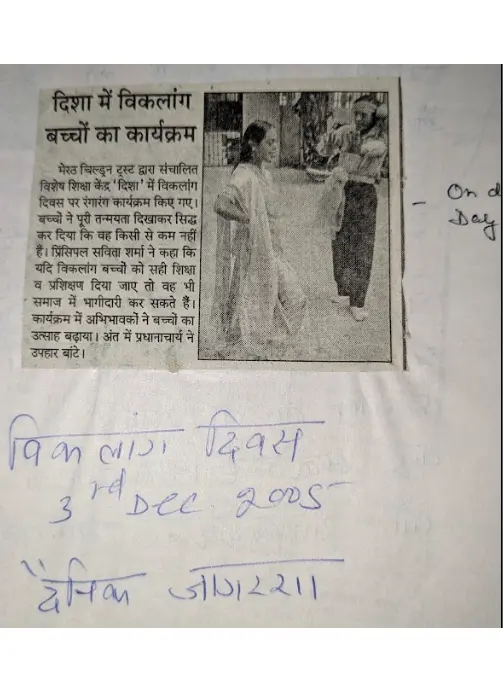 दिशा में विकलांग
बच्चों का कार्यक्रम
मेरठ चिल्ड्रन ट्रस्ट द्वारा संचालित
विशेष शिक्षा केंद्र 'दिशा' में विकलांग
दिवस पर रंगारंग कार्यक्रम किए गए।
बच्चों ने पूरी तन्मयता दिखाकर सिद्ध
कर दिया कि वह किसी से कम नहीं
हैं। प्रिंसिपल सविता शर्मा ने कहा कि
यदि विकलांग बच्चों को सही शिक्षा
व प्रशिक्षण दिया जाए तो वह भी
समाज में भागीदारी कर सकते हैं।
कार्यक्रम में अभिभावकों ने बच्चों का
उत्साह बढ़ाया। अंत में प्रधानाचार्य ने
उपहार बांटे।
- On d
Day
विकलाग दिवस
3rd Dec. 2005
दैनिक जागरण